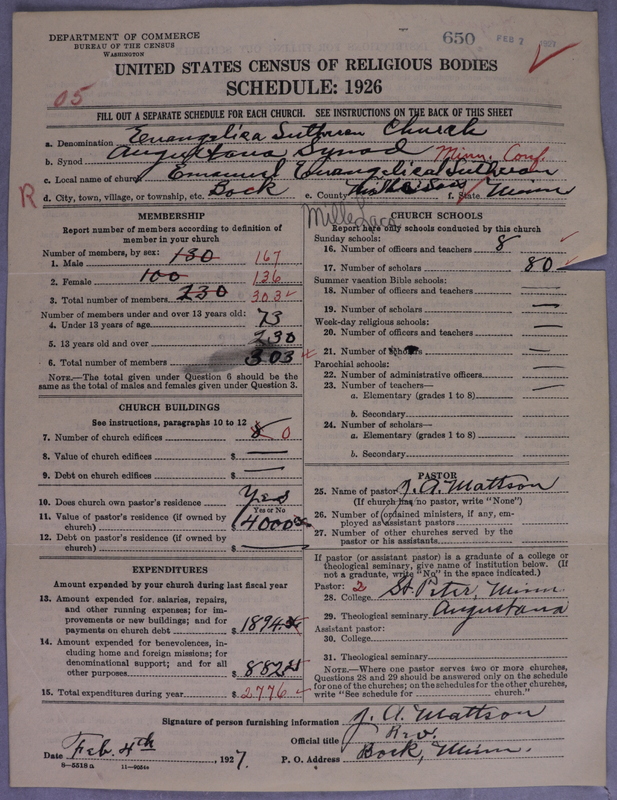 DEPARTMENT OF COMMERCE
BUREAU OF THE CENSUS
WASHINGTON
650 FEB 7 1927
UNITED STATES CENSUS OF RELIGIOUS BODIES
SCHEDULE: 1926
05
FILL OUT A SEPARATE SCHEDULE FOR EACH CHURCH. SEE INSTRUCTIONS ON THE BACK OF THIS SHEET
a. Denomination Evangelica Lutheran Church
b. Synod Augustana Synod Minn. Conf.
c. Local name of church Emanuel Evangelica Lutheran
R
d. City, town, village, or township, etc. Bock e. County f. State Minn
Mille Lacs
MEMBERSHIP
Report number of members according to definition of member in your church
Number of members, by sex:
1. Male 130 167
2. Female 100 136
3. Total number of members 230 303
Number of members under and over 13 years old:
4. Under 13 years of age 73
5. 13 years old and over 230
6. Total number of members 303
NOTE.—The total given under Question 6 should be the
same as the total of males and females given under Question 3.
CHURCH BUILDINGS
See instructions, paragraphs 10 to 12
7. Number of church edifices 0
8. Value of church edifices $ —
9. Debt on church edifices $ —
10. Does church own pastor's residence Yes
Yes or No
11. Value of pastor's residence (if owned by
church) $ 4000
12. Debt on pastor's residence (if owned by
church) $ —
EXPENDITURES
Amount expended by your church during last fiscal year
13. Amount expended for salaries, repairs,
and other running expenses; for im-
provements or new buildings; and for
payments on church debt $ 1894
14. Amount expended for benevolences, in-
cluding home and foreign missions; for
denominational support; and for all
other purposes $ 882
15. Total expenditures during year $ 2776
CHURCH SCHOOLS
Report here only schools conducted by this church
Sunday schools:
16. Number of officers and teachers 8
17. Number of scholars 80
Summer vacation Bible schools:
18. Number of officers and teachers —
19. Number of scholars —
Week-day religious schools:
20. Number of officers and teachers —
21. Number of scholars —
Parochial schools:
22. Number of administrative officers —
23. Number of teachers— —
a. Elementary (grades 1 to 8)
b. Secondary
24. Number of scholars—
a. Elementary (grades 1 to 8)
b. Secondary
PASTOR
25. Name of pastor J. A. Mattson
(If church has no pastor, write "None")
26. Number of ordained ministers, if any, em-
ployed as assistant pastors
27. Number of other churches served by the
pastor or his assistants
If pastor (or assistant pastor) is a graduate of a college or
theological seminary, give name of Institution below. (If
not a graduate, write "No" in the space indicated.)
Pastor: 2
28. College St. Peter, Minn.
29. Theological seminary Augustana
Assistant pastor:
30. College
31. Theological seminary
NOTE.—Where one pastor serves two or more churches,
Questions 28 and 29 should be answered only on the schedule
for one of the churches; on the schedules for the other churches,
write "See schedule for church."
Signature of person furnishing information J. A. Mattson
Official title Rev.
Date Feb. 4th, 1927. P. O. Address Bock, Minn.
8—5318a